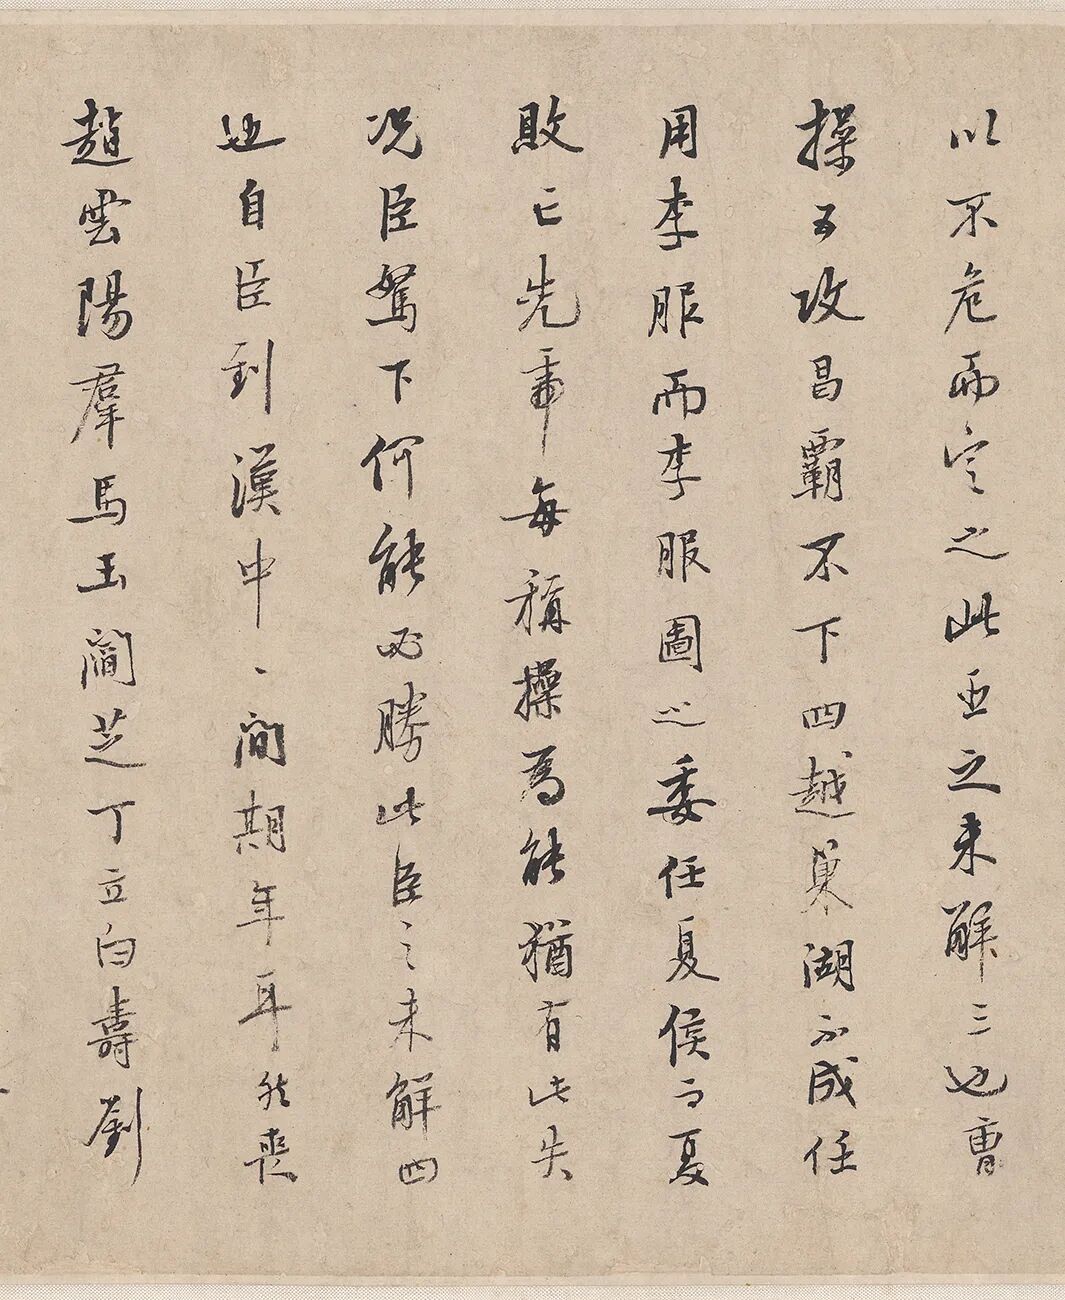 以不危而定之此臣之未解三也曹
操五攻昌霸不下四越巢湖不成任
用李服而李服圖之委任夏侯而夏
敗亡先帝每稱操為能猶有此失
况臣駑下何能必勝此臣之未解四
也自臣到漢中、間期年耳然喪
趙雲陽羣馬玉閻芝丁立白壽劉